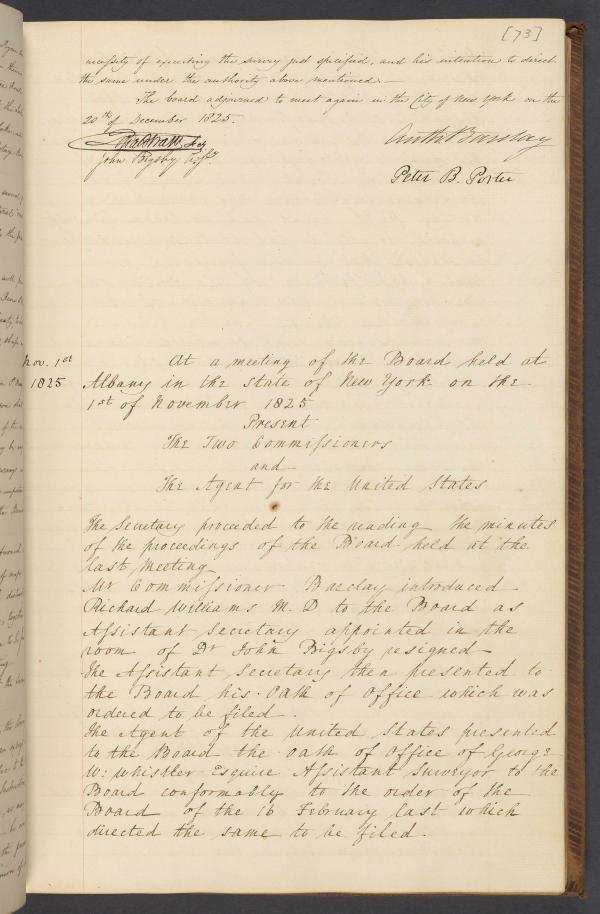 [73]
necessity of executing the survey just specified, and his intention to direct
the same under the authority above mentioned.—
The board adjourned to meet again in the City of New York on the
20th of December 1825.
Anth: Barclay
Secy
John Bigsby Asst.
Peter B. Porter
Nov. 1st
1825
At a meeting of the Board held at
Albany in the state of New York on the
1st of November 1825
Present
The Two Commissioners
and
The Agent for the United States
The Secretary proceeded to the reading the minutes
of the proceedings of the Board held at the
last meeting
Mr Commissioner Barclay introduced
Richard Williams M. D to the Board as
Assistant Secretary appointed in the
room of Dr John Bigsby resigned
The Assistant Secretary then presented to
the Board his Oath of Office which was
ordered to be filed.
The Agent of the United States presented
to the Board the Oath of Office of George
W: Whistler Esquire Assistant Surveyor to the
Board conformably to the order of the
Board of the 16 February last which
directed the same to be filed.